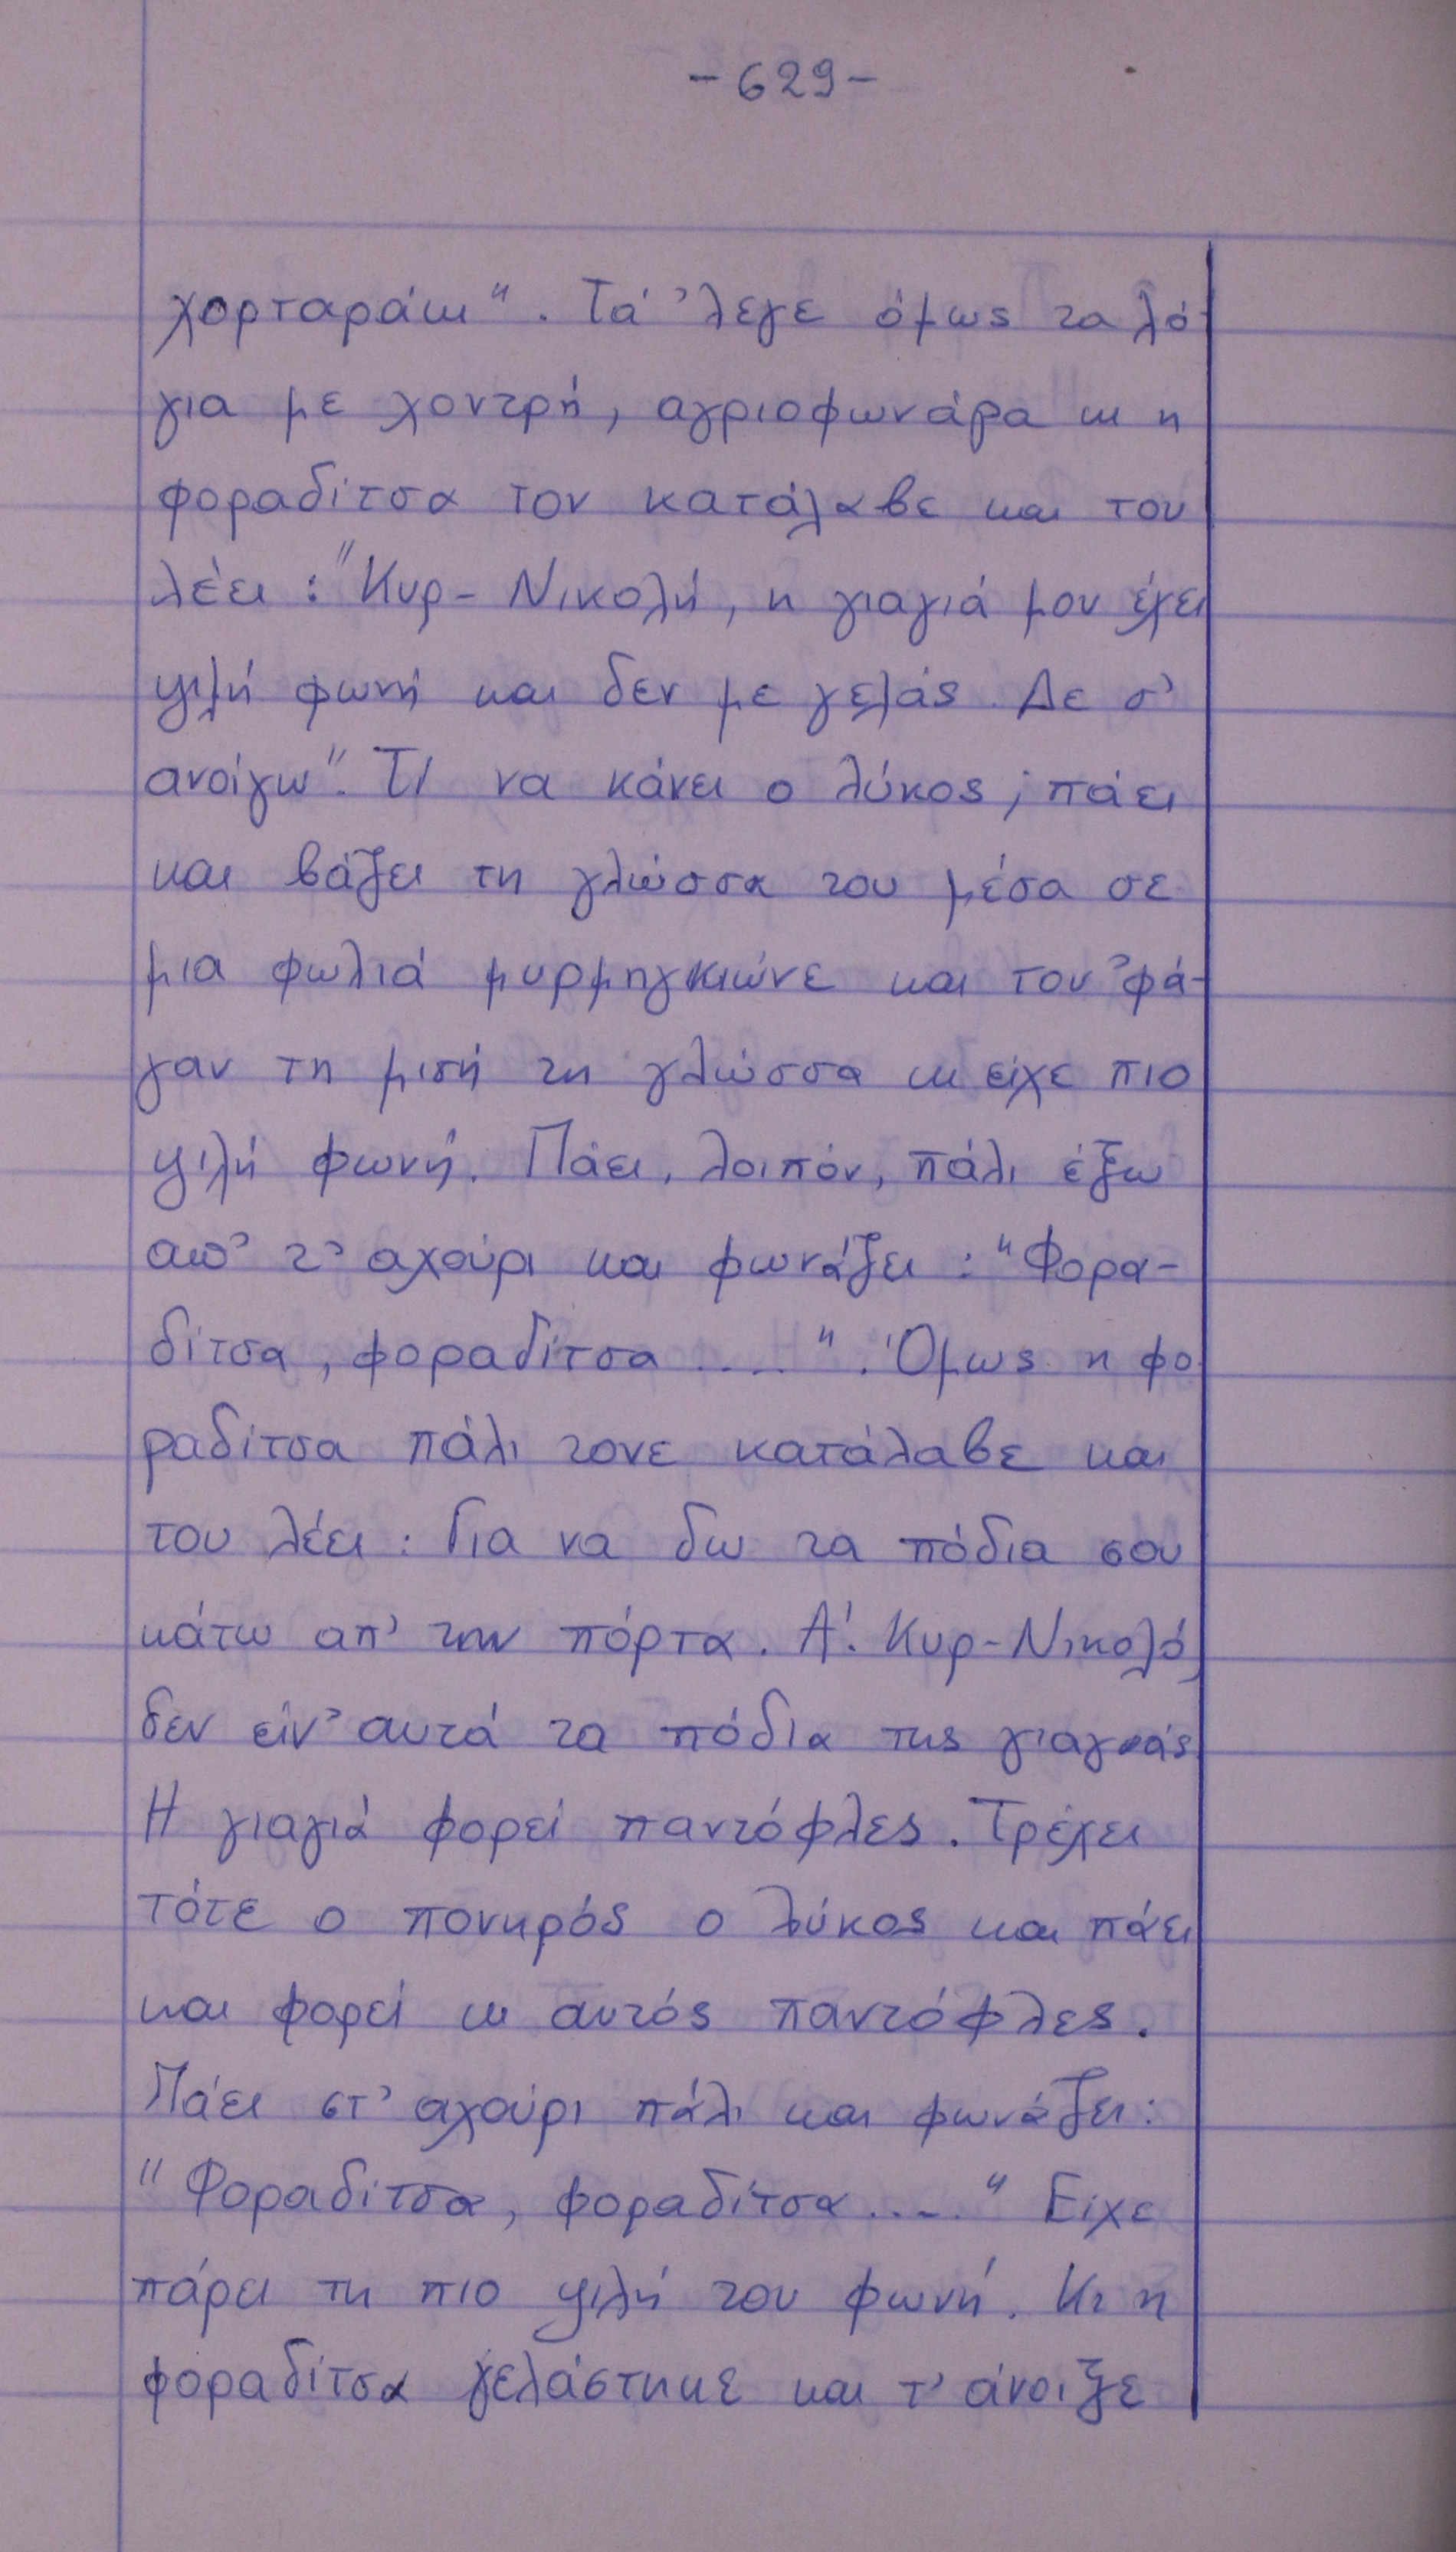 -629-
χορταράκι". Τά 'λεγε όμως τα λό-
για με χοντρή, αγριοφωνάρα κι η
φοραδίτσα τον κατάλαβε και του
λέει: "Κυρ-Νικολή, η γιαγιά μου έχει
ψιλή φωνή και δεν με γελάς. Δε σ'
ανοίγω". Τι να κάνει ο λύκος; πάει
και βάζει τη γλώσσα του μέσα σε
μια φωλιά μυρμηγκιώνε και του 'φά-
γαν τη μισή τη γλώσσα κι είχε πιο
ψιλή φωνή. Πάει, λοιπόν, πάλι έξω
απ' τ' αχούρι και φωνάζει: "Φορα-
δίτσα, φοραδίτσα ....". Όμως η φο-
ραδίτσα πάλι τονε κατάλαβε και
του λέει: Για να δω τα πόδια σου
κάτω απ' την πόρτα. Α! Κυρ-Νικολό,
δεν είν' αυτά τα πόδια της γιαγιάς.
Η γιαγιά φορεί παντόφλες. Τρέχει
τότε ο πονηρός ο λύκος και πάει
και φορεί κι αυτός παντόφλες.
Πάει στ' αχούρι πάλι και φωνάζει:
"Φοραδίτσα, φοραδίτσα...." Είχε
πάρει τη πιο ψιλή του φωνή. Κι η
φοραδίτσα γελάστηκε και τ' άνοιξε